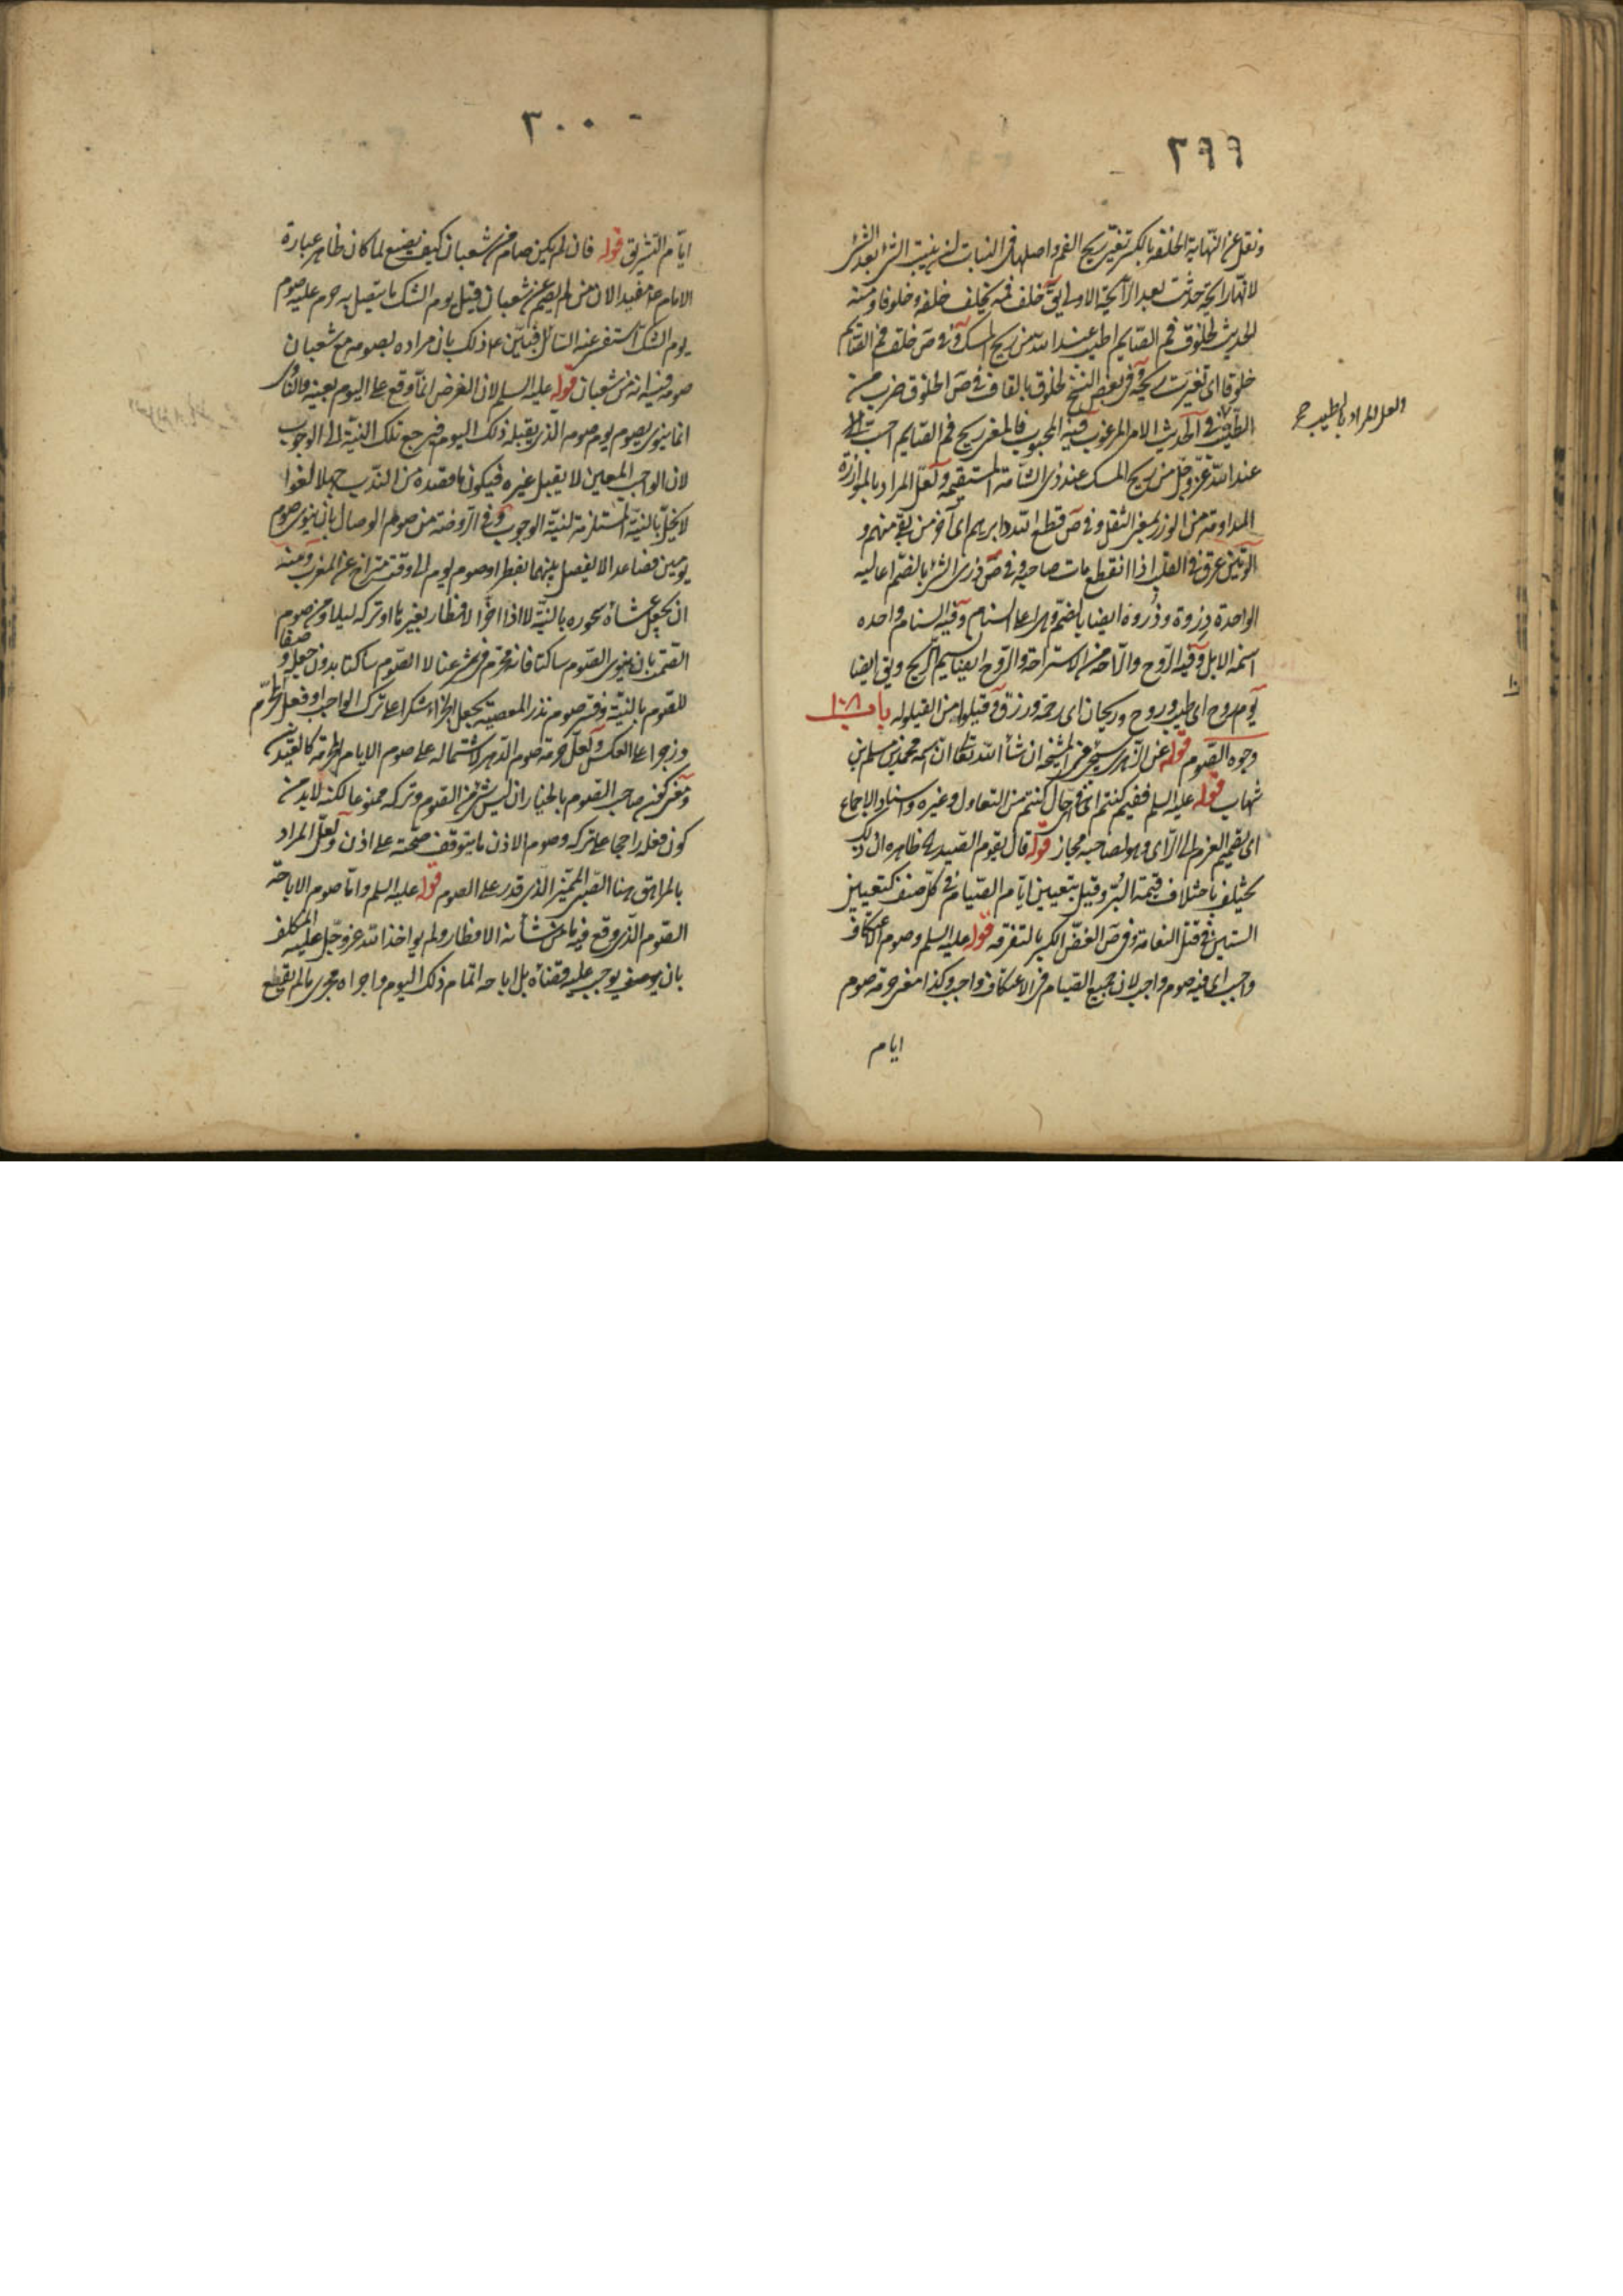 ٢٩٩
ونقل عن النهاية الخلفة بالكسر تغيّر ريح الفم واصلها فى النبات ان ينبت الشئ بعد الشئ
لانها رايحة حدثت بعد الرايحة الاولى يقٓ خلف فمه يخلف خلفة وخلوفا ومنه
الحديث لخلوف فم الصّايم اطيب عند الله من ريح المسك وٓفى صٓ خلف فم الصّايم
خلوفا اى تغيّرت ريحه وٓفى بعض النسخ لخلوق بالقاف وٓفى صٓ الخلوق ضرب من
الطّيب فى الحديث الامر المرغوب فيه المحبوب فالمعنى ريح فم الصّايم احب
ولعل المراد بالطيب ح
عند الله عزّ وجلّ من ريح المسك عند ذى الشّامة المستقيمة ولعلّ المراد بالموازرة
المداومة من الوزر بمعنى الثقل وفى صٓ قطع الله دابرهم اى آخر من بقى منهم و
الوتين عرق فى القلب اذا انقطع مات صاحبه وفى صٓ ذرى الشئ بالضمّ اعاليه
الواحدة ذِروة وذُروة ايضا بالضمّ وهى اعلى السنام وفيه السنام واحده
اسنمة الابل وٓفيه الرّوح والرّاحة من الاستراحة والرّوح ايضا نسيم الرّيح ويقٓ ايضا
يوم روح اى طيب وروح وريحان اى رحمة ورزق وٓ قيلوا من القيلولة باب ١٠٨
وجوه الصّوم قوله عن الزهرى سيجئ فى المشيخة ان شأ الله تعالى ان اسمه محمد بن مسلم بن
شهاب قوله عليه السلم ففيم كنتم اى فى اىّ حال كنتم من التعاول وغيره واسناد الاجماع
اى تصميم العزم الى الرّاى وهو لصاحبه مجاز قوله قال يقوم الصّيد الخ ظاهره ان ذلك
يختلف باختلاف قيمة البُرّ وقيل بتعيين ايّام الصّيام فى كلّ صنف كتعيين
الستين فى قتل النعامة وفى صٓ الفضّ الكسر بالتفرقة قوله عليه السلم وصوم الاعتكاف
واجب اى فيه صوم واجب لان جميع الصّيام فى الاعتكاف واجب وكذا معنى حرمة صوم
ايام
٣٠٠
ايّام التّشريق قوله فان لم يكن صام من شعبان كيف يصنع لما كان ظاهر عبارة
الامام مفيد الان من لم يصم عن شعبان قبل يوم الشك ما يتصل به حرم عليه صوم
يوم الشكّ استفسر عنه السّائل فبيّن ع ذلك بان مراده بصومه مع شعبان
صومه بنية انه من شعبان قوله عليه السلم لان الفرض انّما وقع على اليوم بعينه والنّاوى
انما ينوى بصوم يوم صومه الذى يقبله ذلك اليوم فيرجع تلك النيّة الى الوجوب
لان الواجب المعين لا يقبل غيره فيكون ما قصده من النّدب جهلا لغوا
لا يخلّ بالنيّة المستلزمة لنيّة الوجوب وٓفى الرّوضة من صوم الوصال بان ينوى صوم
يومين فصاعدا لا يفصل بينهما بفطر او صوم يوم الى وقت متراخ عن المغرب ومنه
ان يجعل عشاه سحوره بالنيّة لا اذا اخّر الافطار بغير ما او تركه ليلا ومن صوم
الصّمت بان ينوى الصّوم ساكتا فانه محرّم فى شرعنا لا الصّوم ساكتا بدون جعله وصفا
للصّوم بالنيّة وفسّر صوم نذر المعصية بجعل الجزاء شكرا على ترك الواجب او فعل المحرّم
وزجرا على العكس ولعلّ حرمة صوم الدهر لاشتماله على صوم الايام المحرمة كالعيدين
ومعنى كون صاحب الصّوم بالخيار ان ليس شئ من الصّوم وتركه ممنوعا لكنه لابد من
كون فعله راجحا على تركه وصوم الاذن ما يتوقف صحّته على اذن ولعلّ المراد
بالمراهق هنا الصّبى المميّز الّذى قدر على الصوم قوله عليه السلم وامّا صوم الاباحة
الصّوم الّذى وقع فيه ما من شأنه الافطار ولم يواخذ الله عزّ وجلّ عليه المكلف
بان يوصف بوجب عليه قضاه بل اباحه اتمام ذلك اليوم واجراه مجرى ما لم يقطع